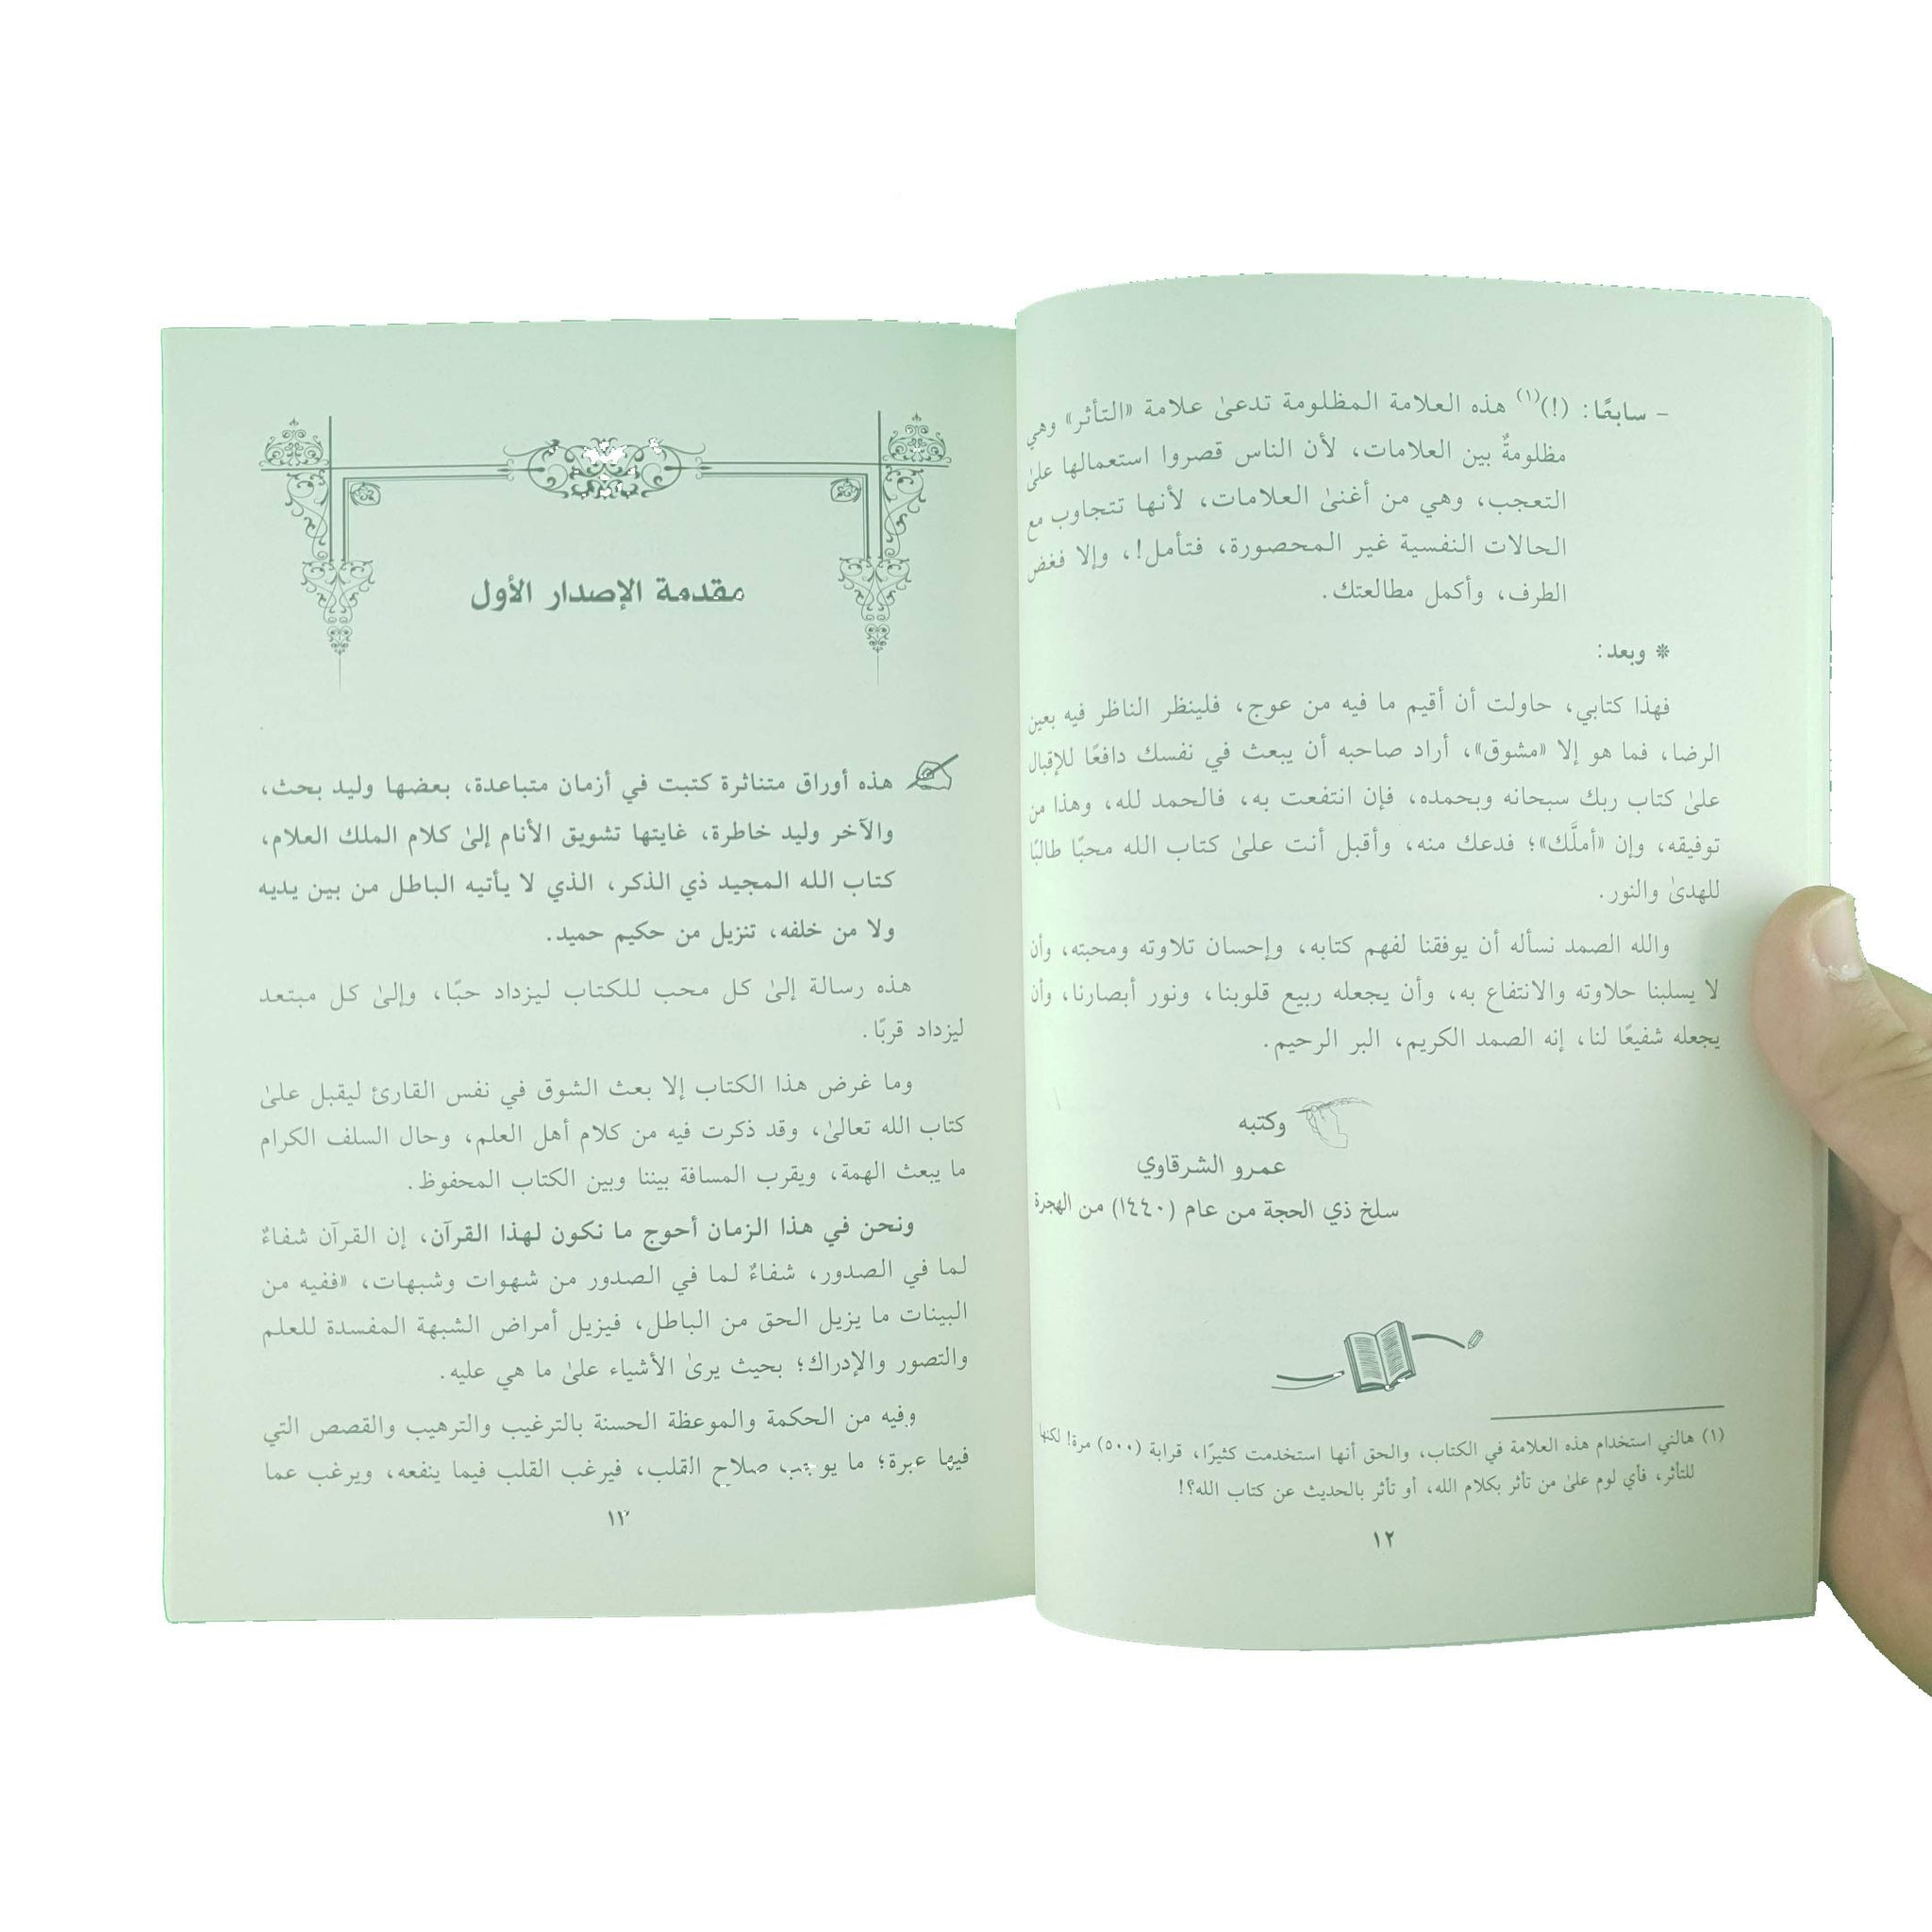 - سابعًا: (!)(١) هذه العلامة المظلومة تدعىٰ علامة «التأثر» وهي
مظلومةٌ بين العلامات، لأن الناس قصروا استعمالها علىٰ
التعجب، وهي من أغنىٰ العلامات، لأنها تتجاوب مع
الحالات النفسية غير المحصورة، فتأمل!، وإلا فغض
الطرف، وأكمل مطالعتك.
* وبعد:
فهذا كتابي، حاولت أن أقيم ما فيه من عوج، فلينظر الناظر فيه بعين
الرضا، فما هو إلا «مشوق»، أراد صاحبه أن يبعث في نفسك دافعًا للإقبال
علىٰ كتاب ربك سبحانه وبحمده، فإن انتفعت به، فالحمد لله، وهذا من
توفيقه، وإن «أملَّك»؛ فدعك منه، وأقبل أنت علىٰ كتاب الله محبًا طالبًا
للهدىٰ والنور.
والله الصمد نسأله أن يوفقنا لفهم كتابه، وإحسان تلاوته ومحبته، وأن
لا يسلبنا حلاوته والانتفاع به، وأن يجعله ربيع قلوبنا، ونور أبصارنا، وأن
يجعله شفيعًا لنا، إنه الصمد الكريم، البر الرحيم.
وكتبه
عمرو الشرقاوي
سلخ ذي الحجة من عام (١٤٤٠) من الهجرة
(١) هالني استخدام هذه العلامة في الكتاب، والحق أنها استخدمت كثيرًا، قرابة (٥٠٠) مرة! لكنها
للتأثر، فأي لوم علىٰ من تأثر بكلام الله، أو تأثر بالحديث عن كتاب الله؟!
١٢
مقدمة الإصدار الأول
هذه أوراق متناثرة كتبت في أزمان متباعدة، بعضها وليد بحث،
والآخر وليد خاطرة، غايتها تشويق الأنام إلىٰ كلام الملك العلام،
كتاب الله المجيد ذي الذكر، الذي لا يأتيه الباطل من بين يديه
ولا من خلفه، تنزيل من حكيم حميد.
هذه رسالة إلىٰ كل محب للكتاب ليزداد حبًا، وإلىٰ كل مبتعد
ليزداد قربًا.
وما غرض هذا الكتاب إلا بعث الشوق في نفس القارئ ليقبل علىٰ
كتاب الله تعالىٰ، وقد ذكرت فيه من كلام أهل العلم، وحال السلف الكرام
ما يبعث الهمة، ويقرب المسافة بيننا وبين الكتاب المحفوظ.
ونحن في هذا الزمان أحوج ما نكون لهذا القرآن، إن القرآن شفاءٌ
لما في الصدور، شفاءٌ لما في الصدور من شهوات وشبهات، «ففيه من
البينات ما يزيل الحق من الباطل، فيزيل أمراض الشبهة المفسدة للعلم
والتصور والإدراك؛ بحيث يرىٰ الأشياء علىٰ ما هي عليه.
وفيه من الحكمة والموعظة الحسنة بالترغيب والترهيب والقصص التي
فيها عبرة؛ ما يوجب صلاح القلب، فيرغب القلب فيما ينفعه، ويرغب عما
١٣